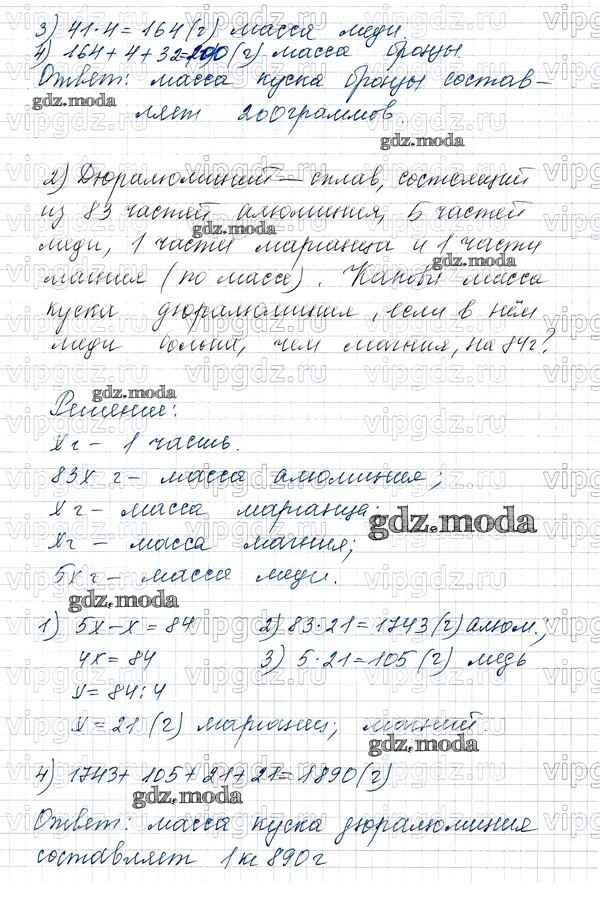 3) 41·4=164(г) масса меди.
4) 164+4+32=200(г) масса бронзы.
Ответ: масса куска бронзы состав-
gdz.moda
ляет 200граммов.
gdz.moda
2) Дюралюминий — сплав, состоящий
из 83 частей алюминия, 5 частей
gdz.moda
меди, 1 части марганца и 1 части
gdz.moda
магния (по массе). Какова масса
куска дюралюминия, если в нём
меди больше, чем магния, на 84г?
gdz.moda
Решение:
хг – 1 часть.
83х г – масса алюминия;
хг – масса марганца;
gdz.moda
хг – масса магния;
5хг – масса меди.
gdz.moda
1) 5х–х=84
4х=84
х=84:4
х=21(г) марганец; магний.
2) 83·21=1743(г) алюм.;
3) 5·21=105(г) медь
gdz.moda
4) 1743+105+21+21=1890(г)
gdz.moda
Ответ: масса куска дюралюминия
составляет 1кг 890г
vipgdz.ru